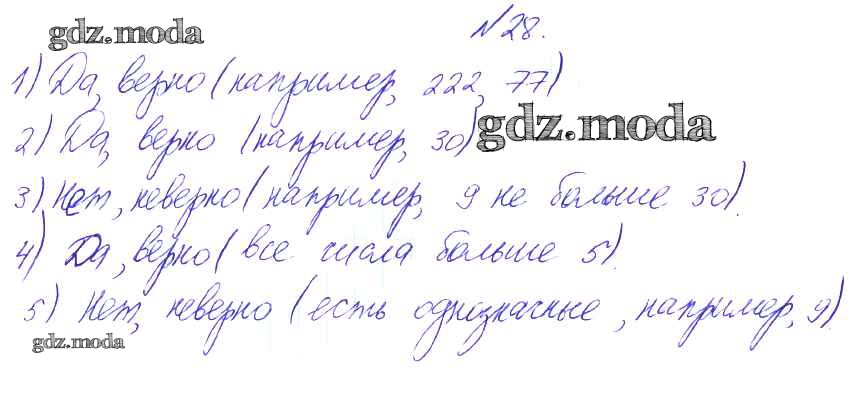 №28.
gdz.moda
1) Да, верно (например, 222, 77)
2) Да, верно (например, 30)
gdz.moda
3) Нет, неверно (например, 9 не больше 30).
4) Да, верно (все числа больше 5).
5) Нет, неверно (есть однозначные, например, 9).
gdz.moda